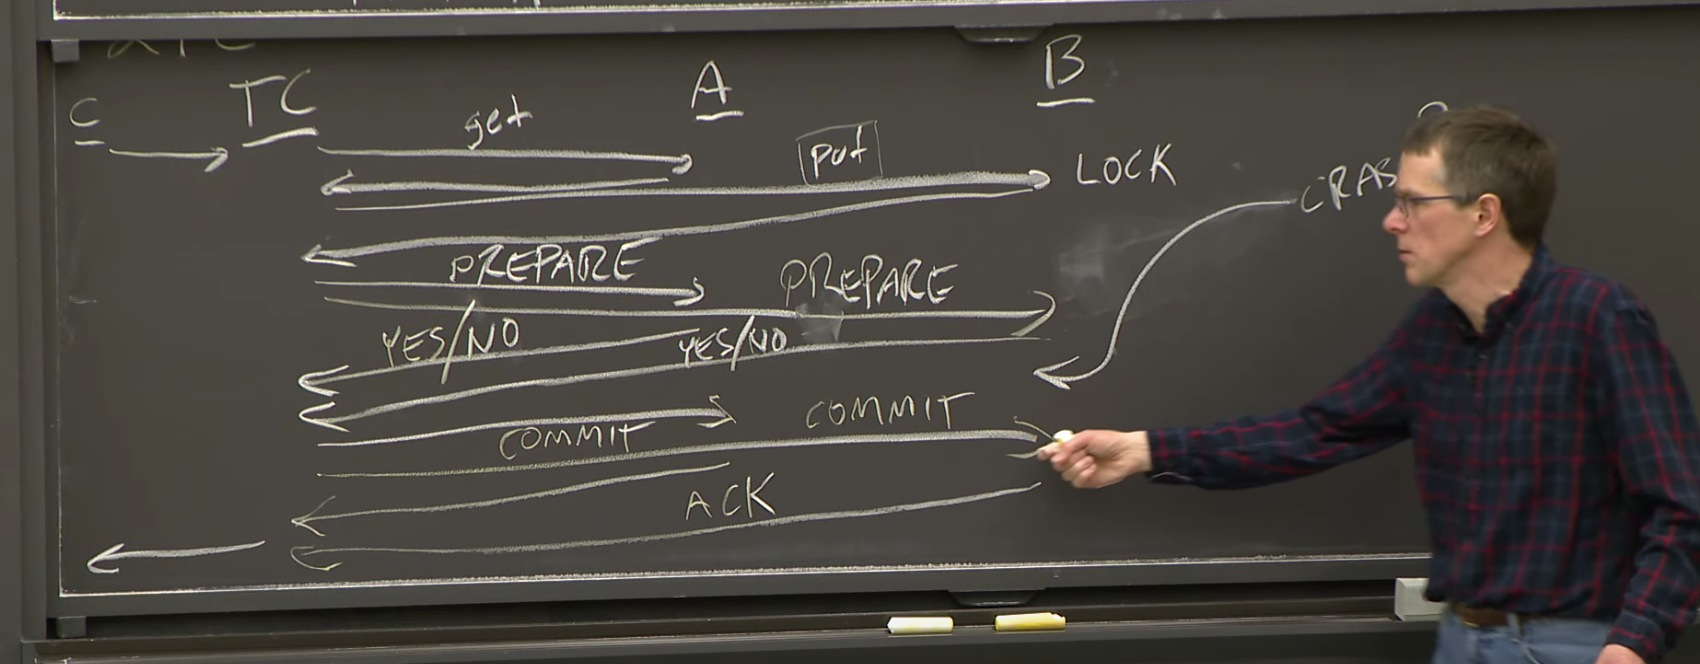 C TC A B
get
put LOCK
CRAS
PREPARE PREPARE
YES/NO YES/NO
COMMIT COMMIT
ACK